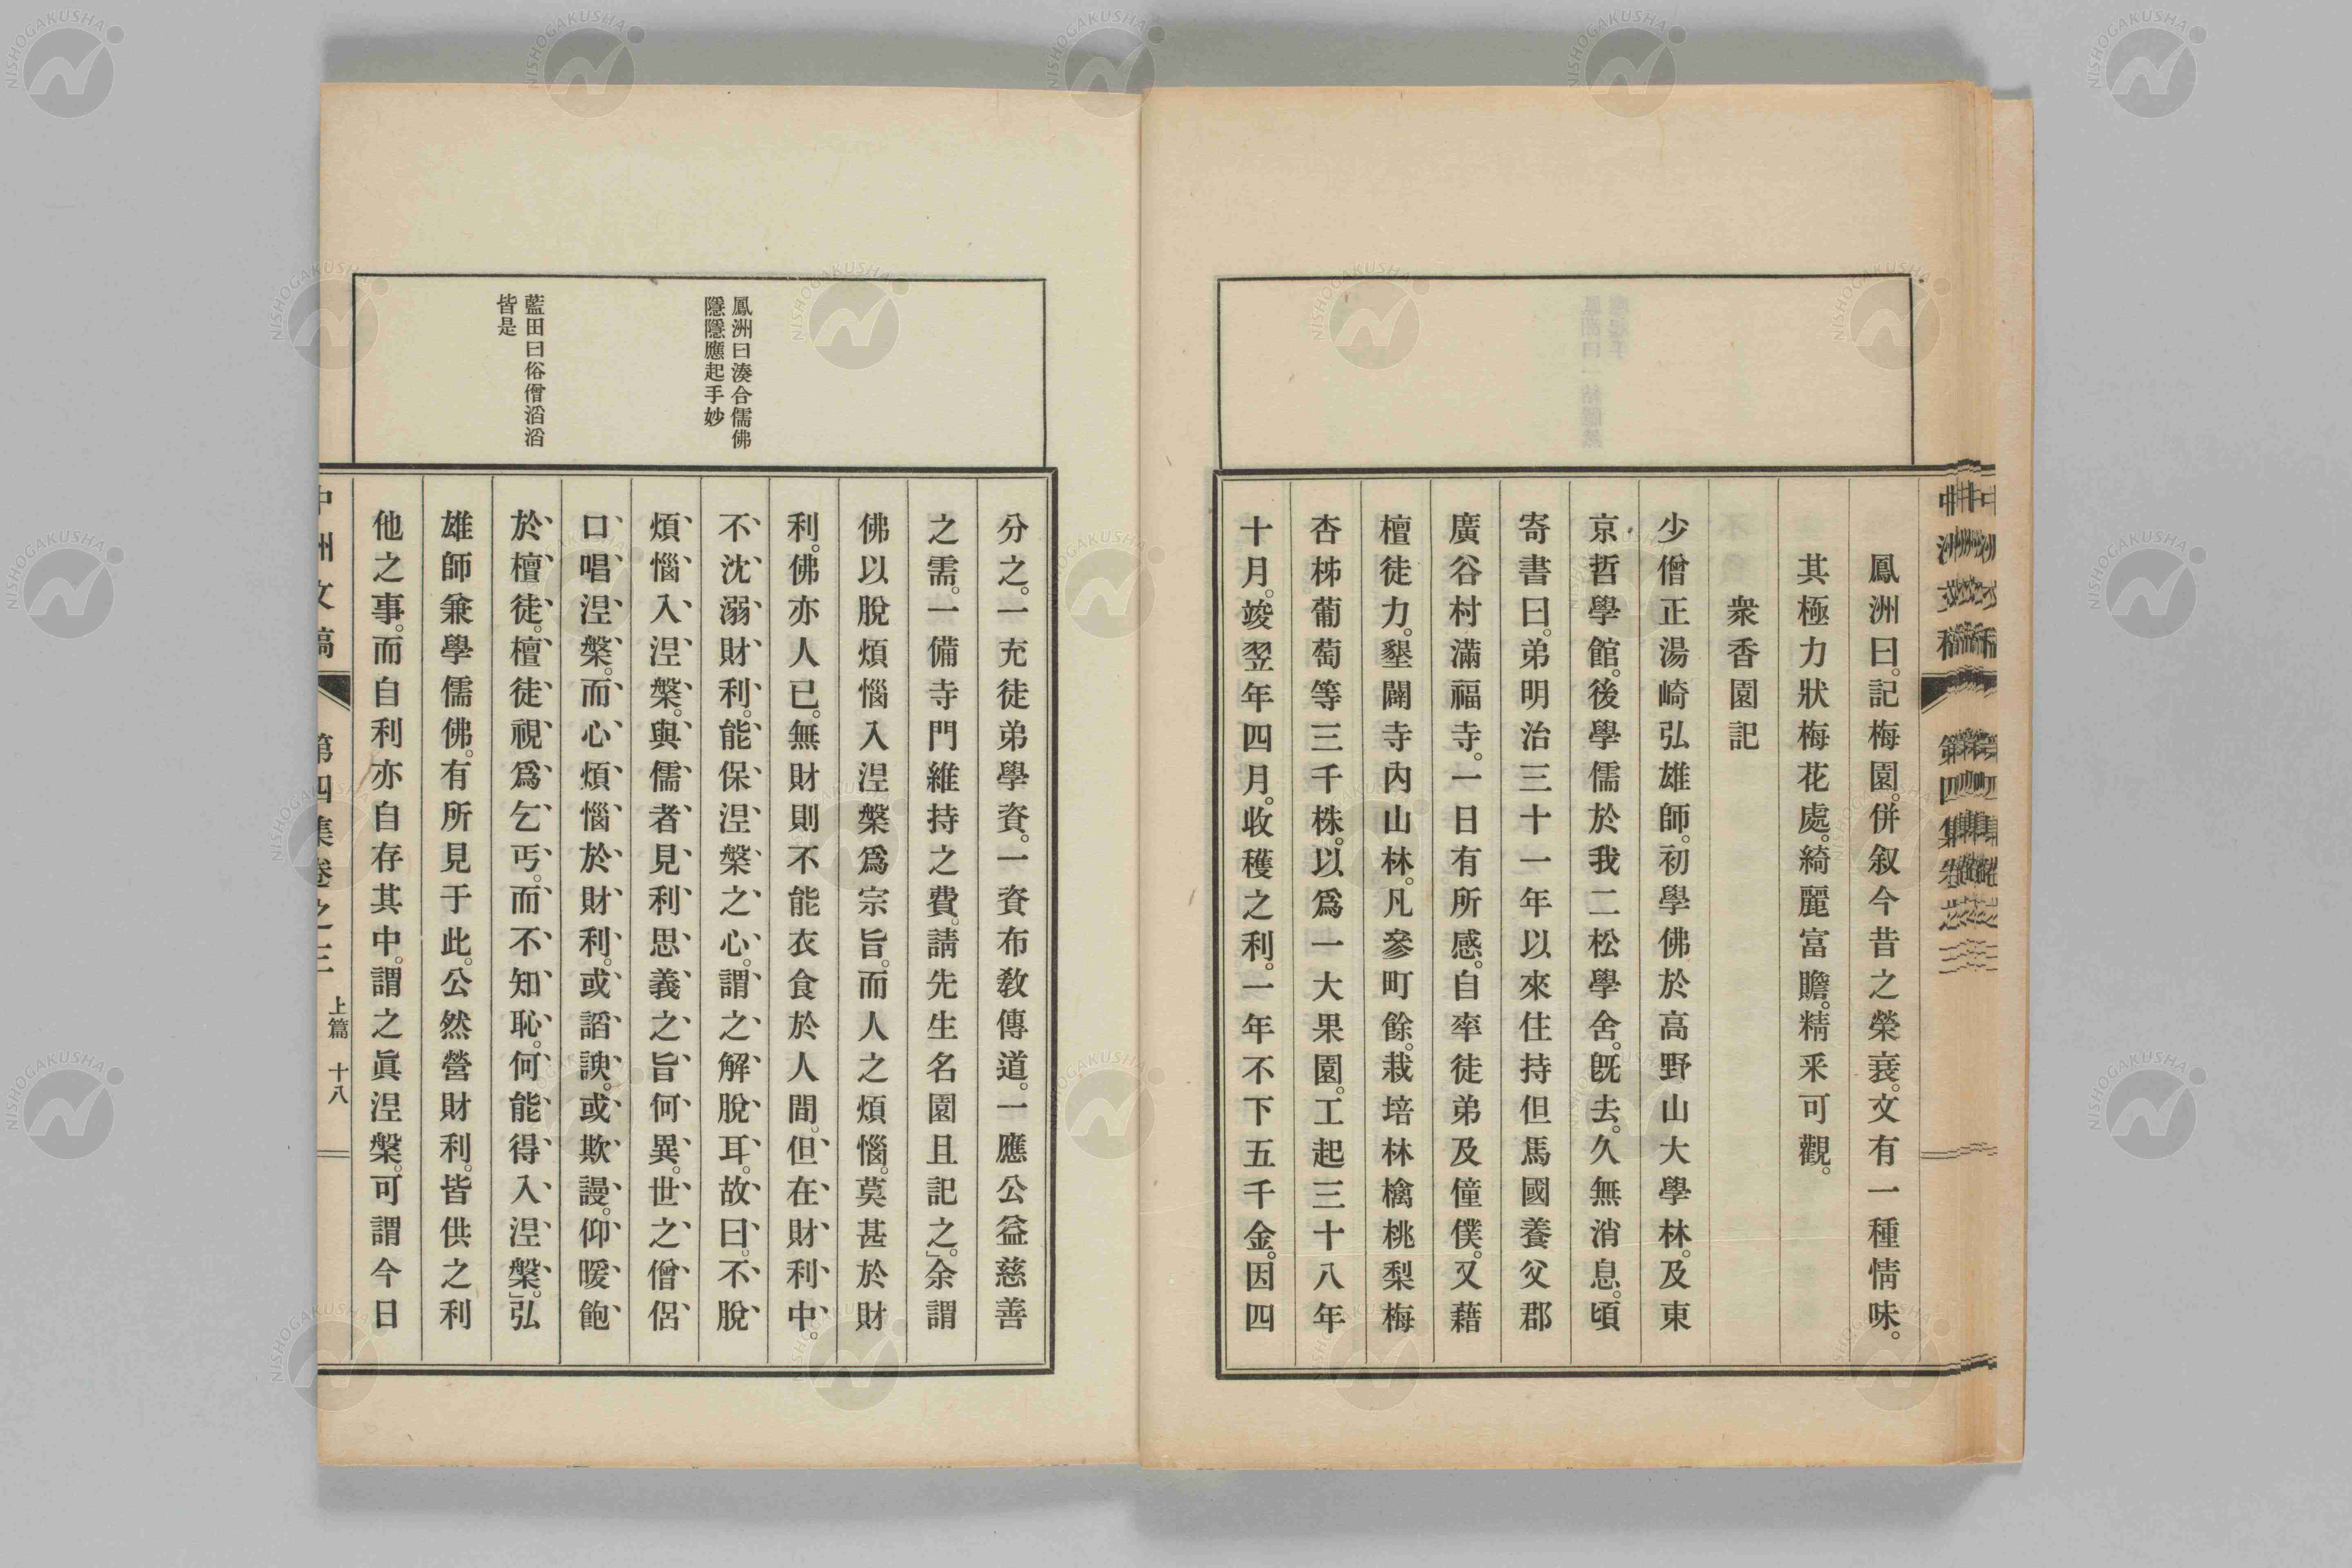 鳳洲曰。記梅園。併叙今昔之榮衰。文有一種情味。
其極力狀梅花處。綺麗富贍。精釆可觀。
衆香園記
少僧正湯崎弘雄師。初學佛於高野山大學林。及東
京哲學館。後學儒於我二松學舍。旣去。久無消息。頃
寄書曰。弟明治三十一年以來住持但馬國養父郡
廣谷村滿福寺。一日有所感。自率徒弟及僮僕。又藉
檀徒力。墾闢寺內山林。凡參町餘。栽培林檎桃梨梅
杏柹葡萄等三千株。以爲一大果園。工起三十八年
十月。竣翌年四月。收穫之利。一年不下五千金。因四
鳳洲曰湊合儒佛
隱隱應起手妙
藍田曰俗僧滔滔
皆是
分之。一充徒弟學資。一資布敎傳道。一應公益慈善
之需。一備寺門維持之費。請先生名園且記之。」余謂
佛以脫煩惱入涅槃爲宗旨。而人之煩惱。莫甚於財
利。佛亦人已。無財則不能衣食於人間。但、在、財、利、中。
不、沈、溺、財、利。能、保、涅、槃、之、心。謂、之、解、脫、耳。故、曰。不、脫、
煩、惱、入、涅、槃。與、儒、者、見、利、思、義、之、旨、何、異。世、之、僧、侶、
口、唱、涅、槃。而、心、煩、惱、於、財、利。或、諂、諛。或、欺、謾。仰、暖、飽、
於、檀、徒。檀、徒、視、爲、乞、丐。而、不、知、恥。何、能、得、入、涅、槃。」弘
雄師兼學儒佛。有所見于此。公然營財利。皆供之利
他之事。而自利亦自存其中。謂之眞涅槃。可謂今日
中洲文稿 第四集卷之三 上篇 十八
NISHOGAKUSHA